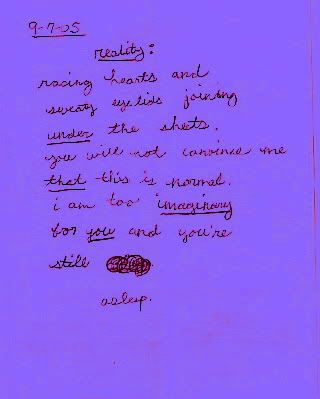 9-7-05
reality:
racing hearts and
sweaty eyelids joining
under the sheets.
you will not convince me
that this is normal.
i am too imaginary
for you and you're
still
asleep.